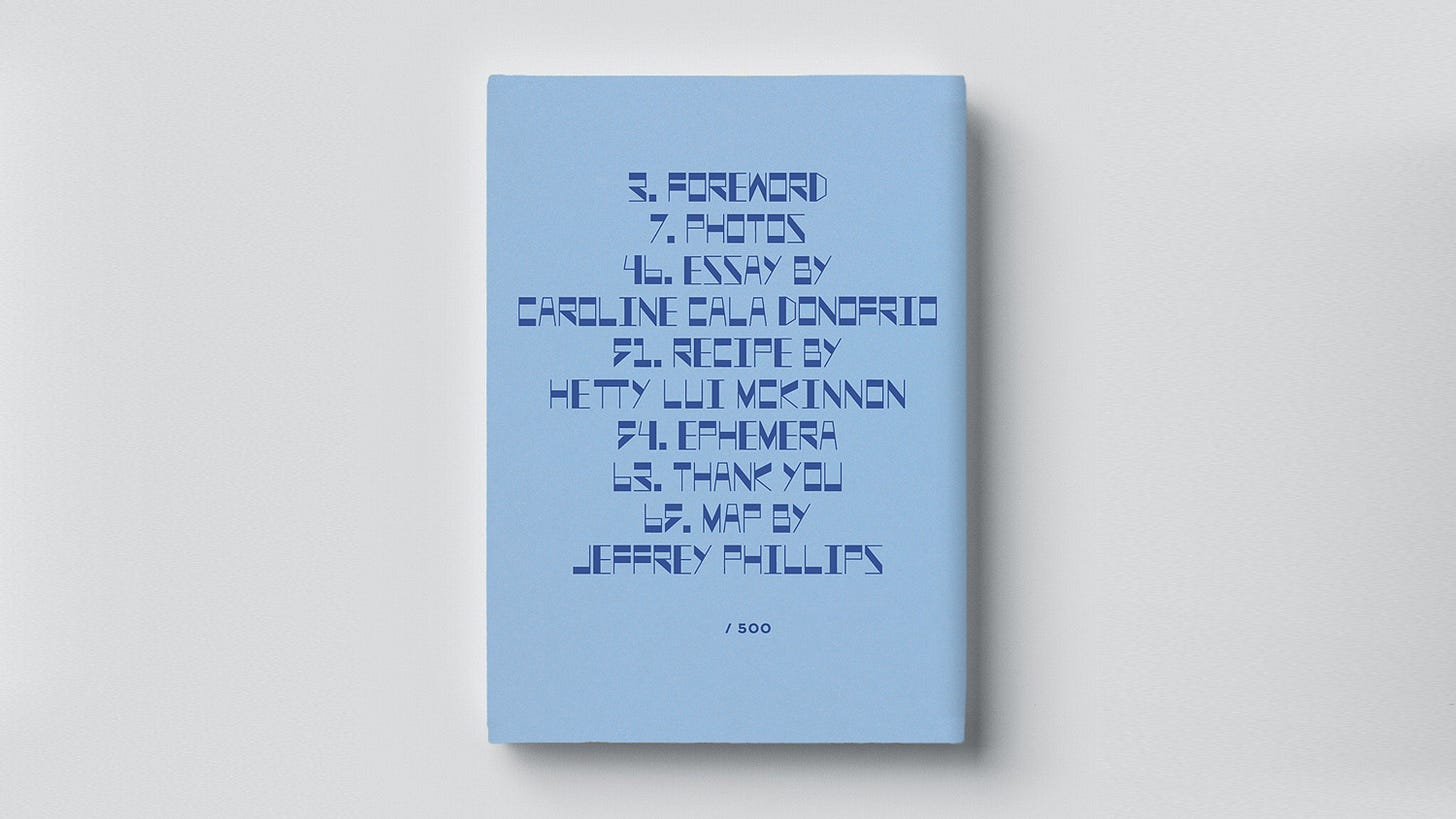 3. FOREWORD
7. PHOTOS
46. ESSAY BY
CAROLINE CALA DONOFRIO
51. RECIPE BY
HETTY LUI MCKINNON
54. EPHEMERA
63. THANK YOU
65. MAP BY
JEFFREY PHILLIPS
/ 500